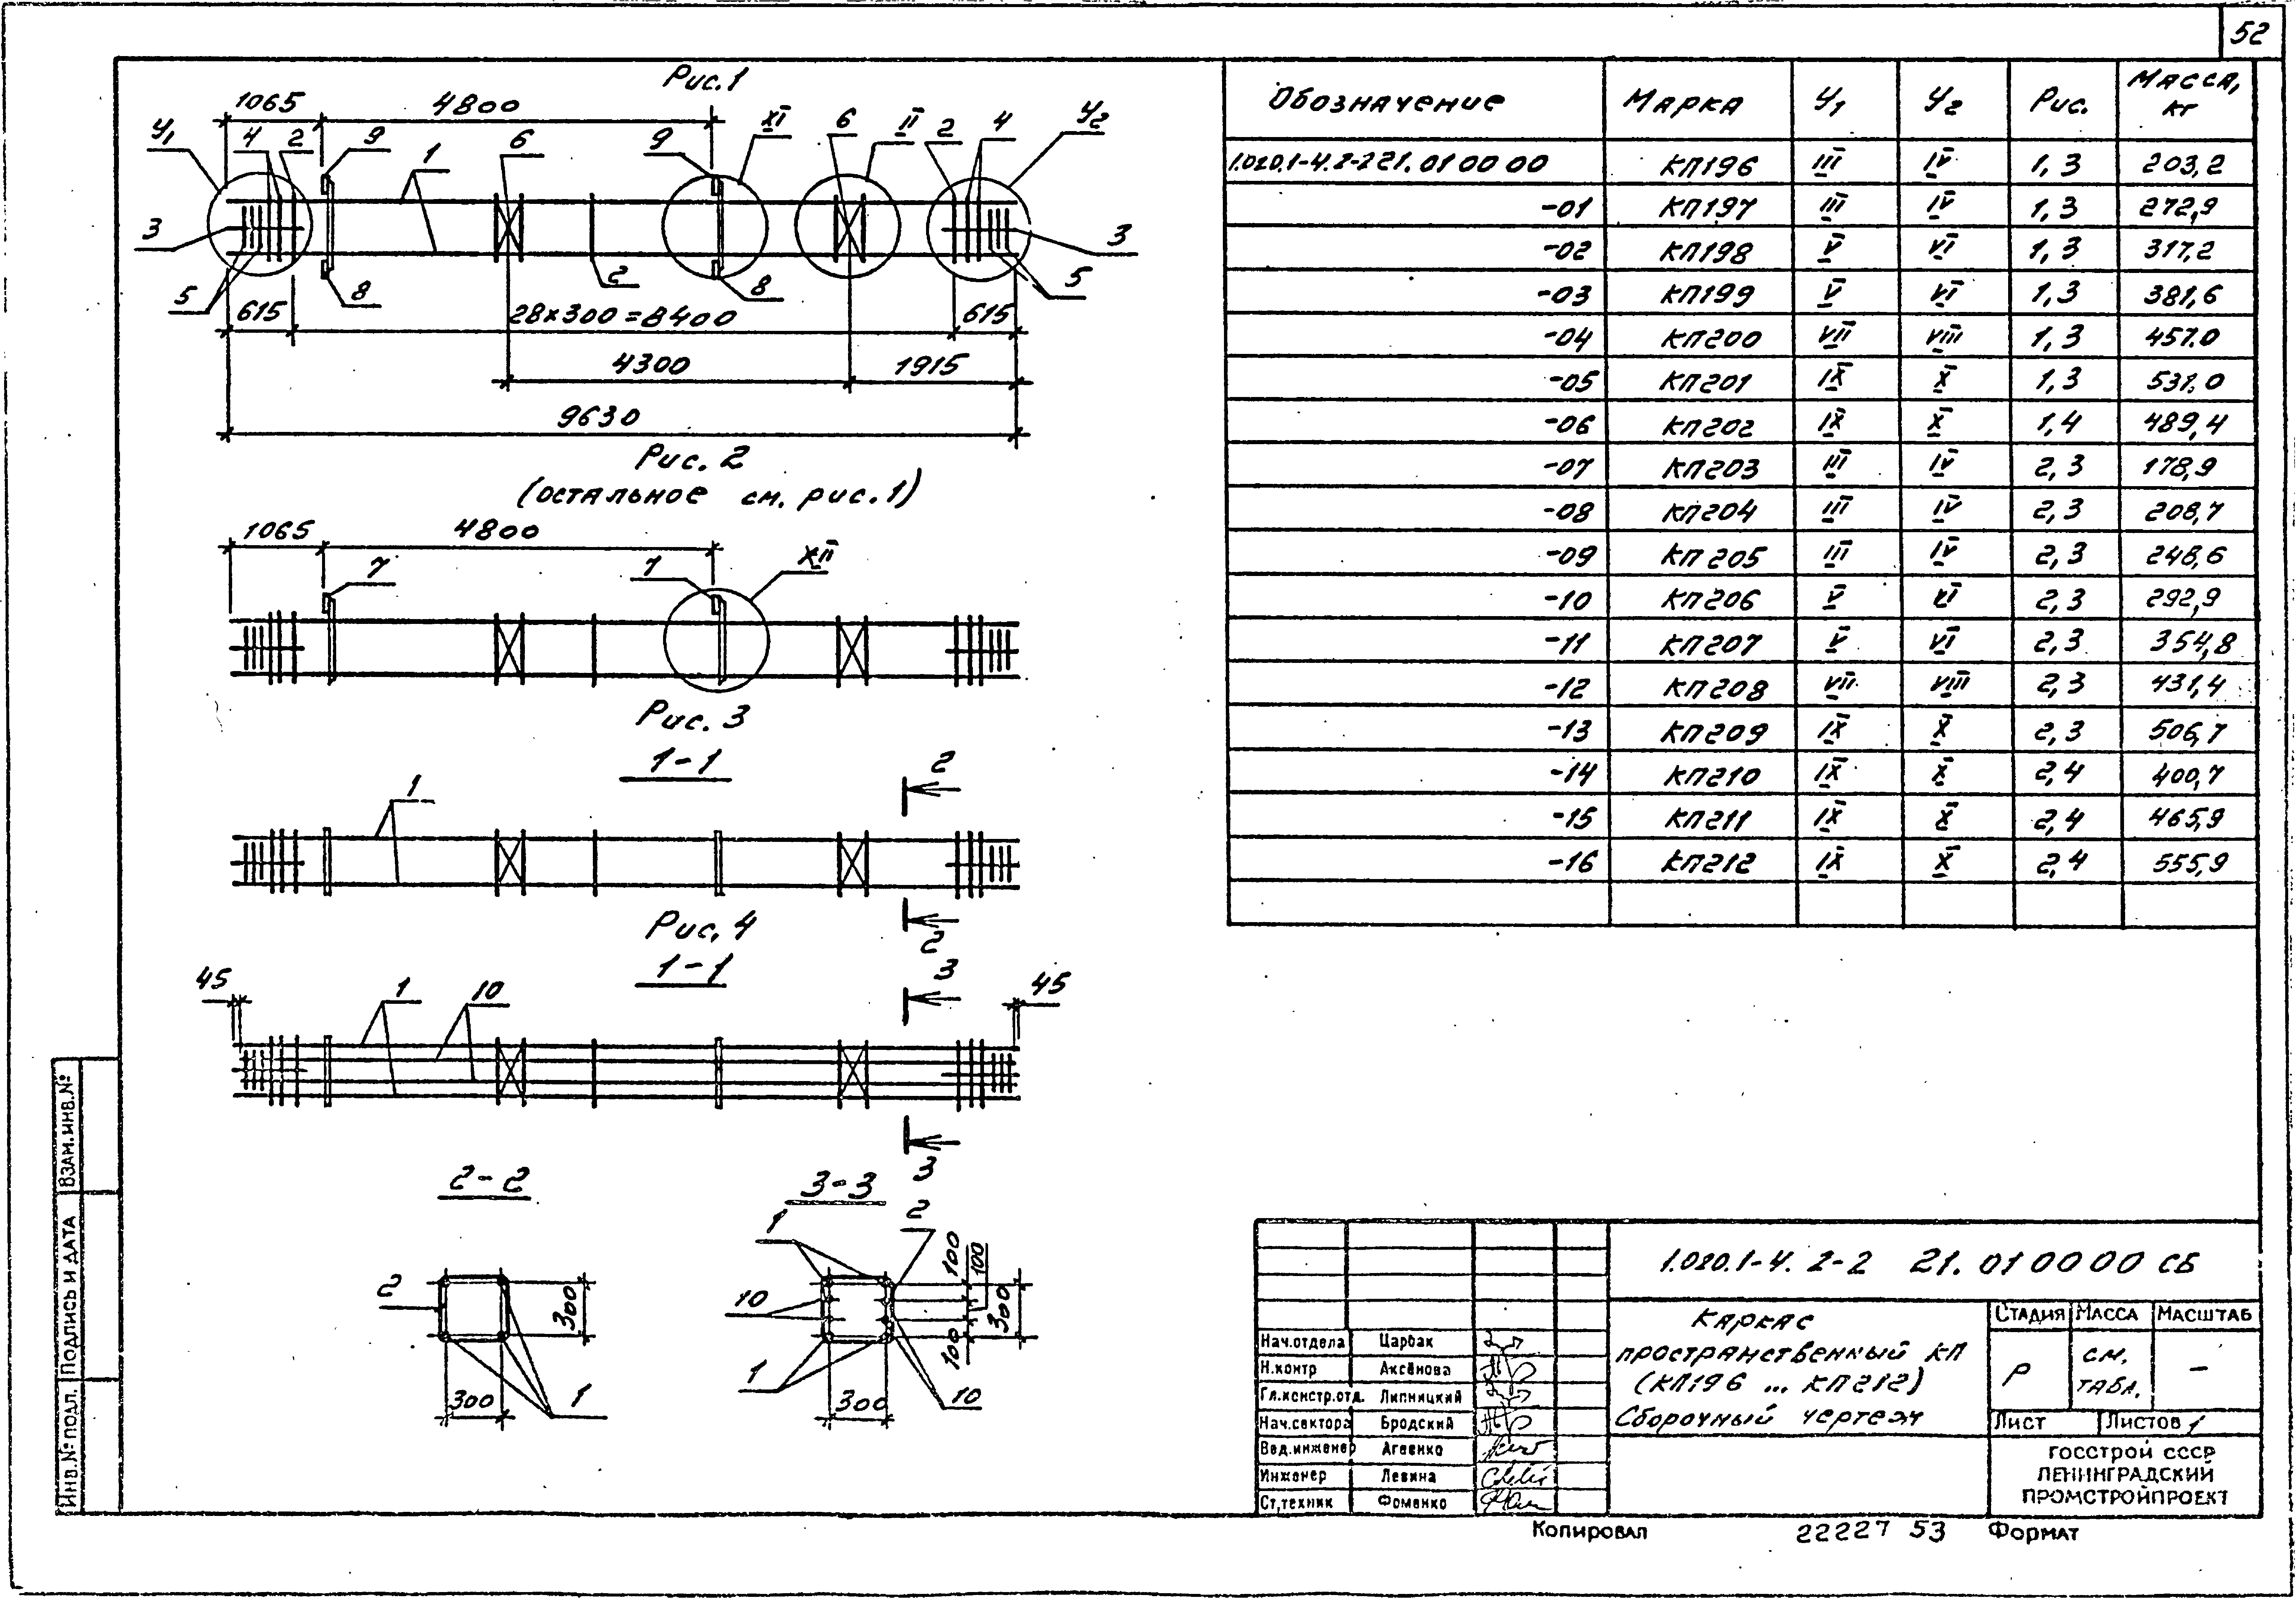 52
Рис.1
1065 4800
У₁ 4 2 9 1 6 9 XI 6 II 2 4 У₂
3 3
5 8 2 8 5
615 28×300=8400 615
4300 1915
9630
Рис. 2
(остальное см. рис.1)
1065 4800
7 7 XII
Рис. 3
1-1
1 2
2
Рис. 4
1-1
45 1 10 3 45
3
2-2
2 300
300 1
3-3
1 2
10 100 100 300
100
1 300 10
Обозначение Марка У₁ У₂ Рис. Масса, кг
1.020.1-4.2-2 21.01 00 00 КП196 III IV 1,3 203,2
-01 КП197 III IV 1,3 272,9
-02 КП198 V VI 1,3 317,2
-03 КП199 V VI 1,3 381,6
-04 КП200 VII VIII 1,3 457.0
-05 КП201 IX X 1,3 531.0
-06 КП202 IX X 1,4 489,4
-07 КП203 III IV 2,3 178,9
-08 КП204 III IV 2,3 208,7
-09 КП205 III IV 2,3 248,6
-10 КП206 V VI 2,3 292,9
-11 КП207 V VI 2,3 354,8
-12 КП208 VII VIII 2,3 431,4
-13 КП209 IX X 2,3 506,7
-14 КП210 IX X 2,4 400,7
-15 КП211 IX X 2,4 465,9
-16 КП212 IX X 2,4 555,9
1.020.1-4. 2-2 21. 01 00 00 СБ
Каркас
пространственный КП
(КП196 ... КП212)
Сборочный чертеж
Стадия Масса Масштаб
Р см. табл. –
Лист Листов 1
Госстрой СССР
Ленинградский
Промстройпроект
Нач.отдела Царбак
Н.контр Аксёнова
Гл.констр.отд. Липницкий
Нач.сектора Бродский
Вед.инженер Агеенко
Инженер Левина
Ст.техник Фоменко
Копировал 22227 53 Формат
Взам.инв.№
Подпись и дата
Инв.№ подл.